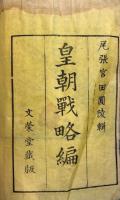 尾張宮田圃陵輯
皇朝戰略編
文榮堂藏版